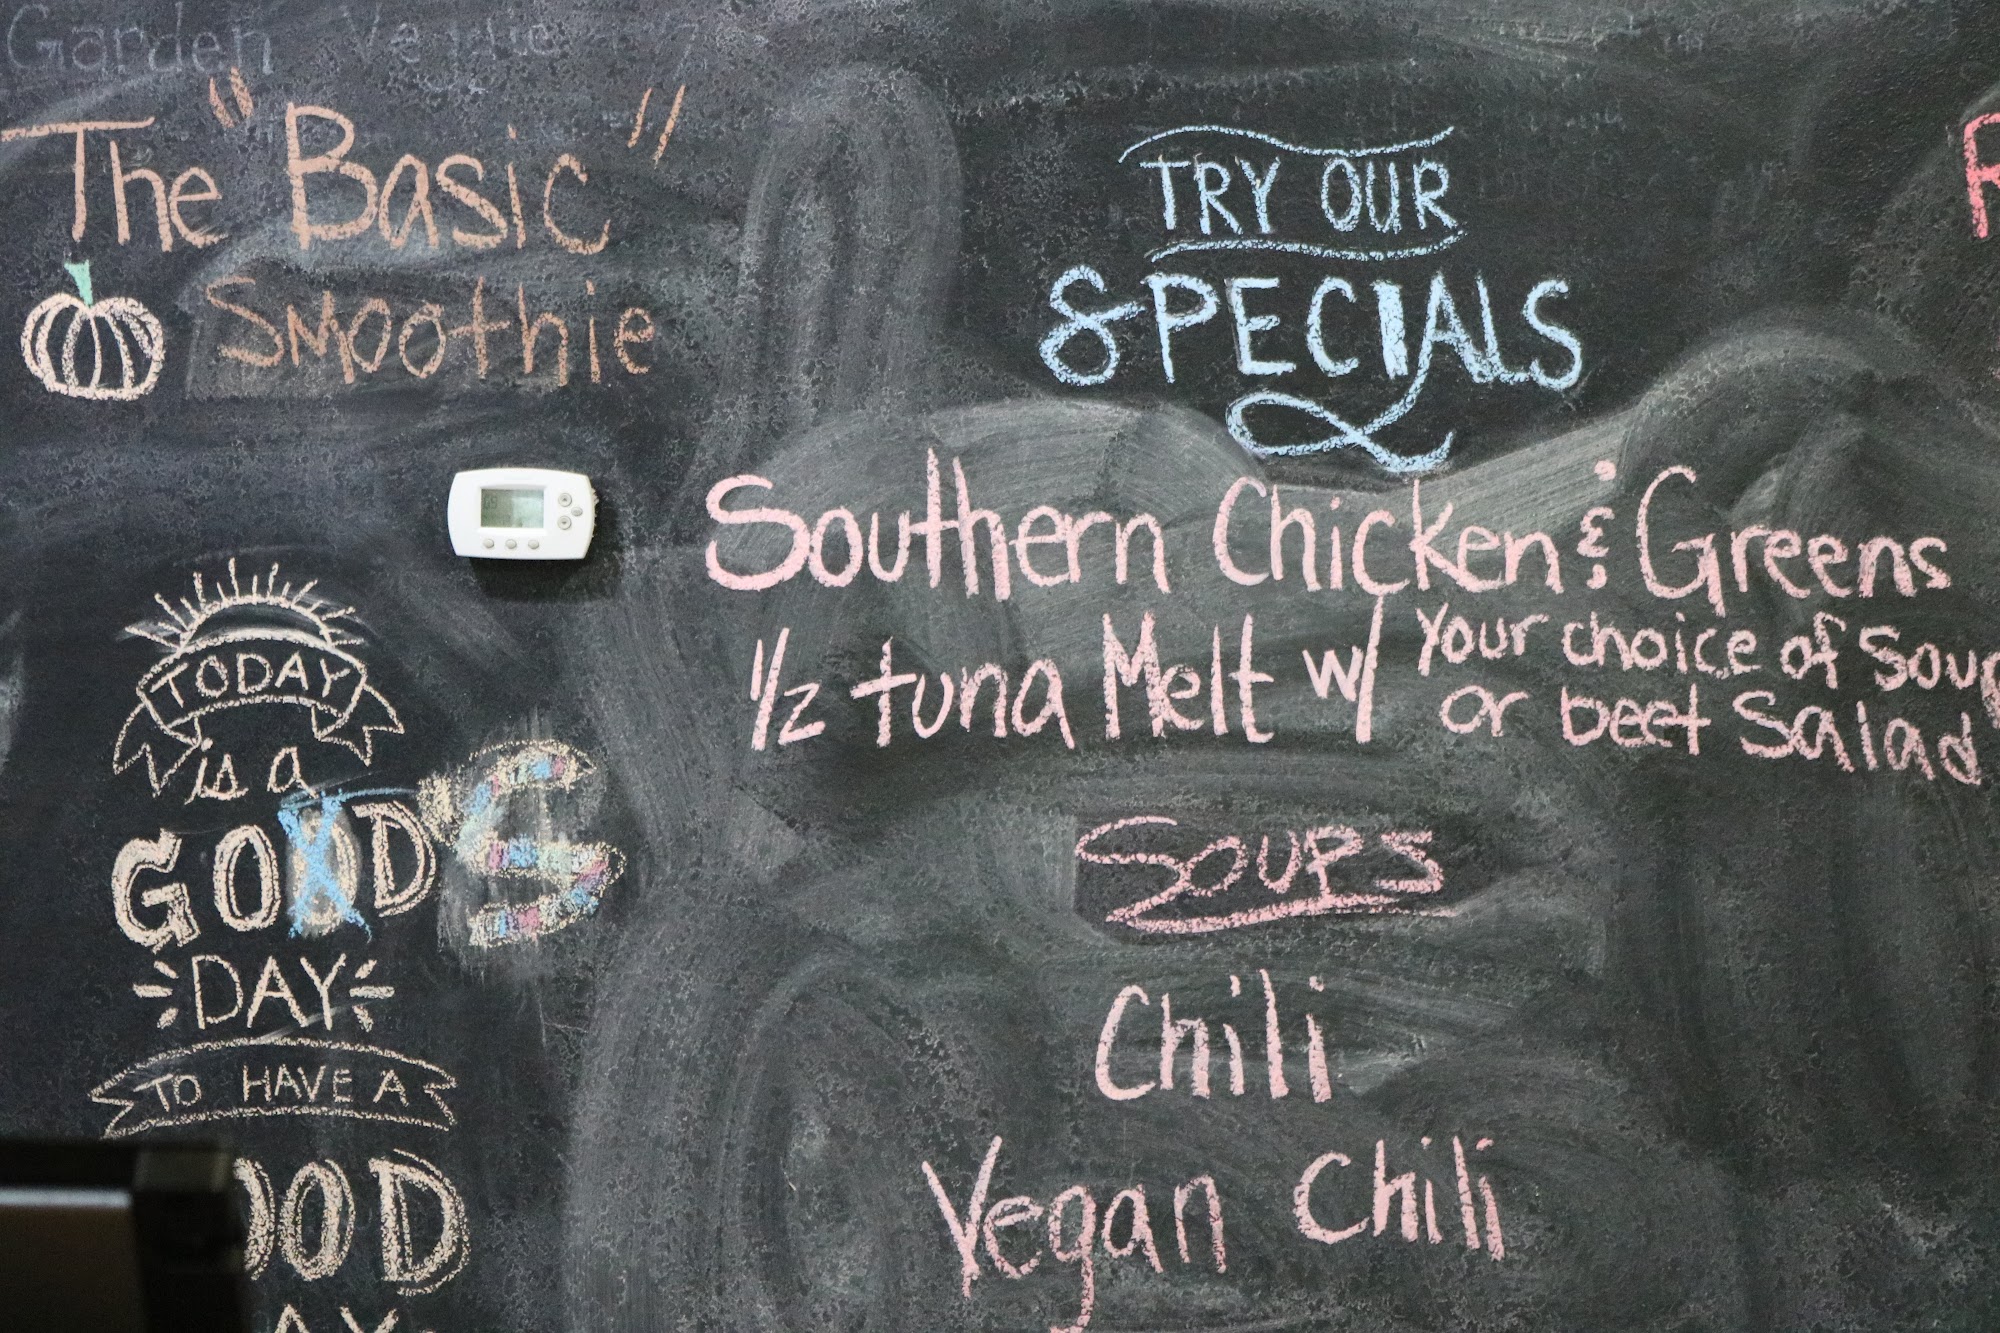 Garden Veggie
The "Basic"
Smoothie
TODAY
is a
GOD'S
DAY
TO HAVE A
OOD
AY
TRY OUR
SPECIALS
Southern Chicken & Greens
1/2 tuna Melt w/ Your choice of Soup
or beet Salad
SOUPS
Chili
Vegan Chili